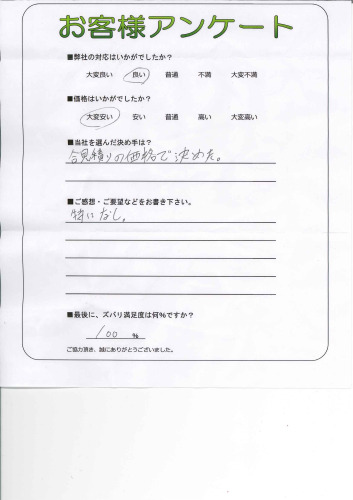 お客様アンケート
■弊社の対応はいかがでしたか?
大変良い 良い 普通 不満 大変不満
■価格はいかがでしたか?
大変安い 安い 普通 高い 大変高い
■当社を選んだ決め手は?
合見積りの価格で決めた。
■ご感想・ご要望などをお書き下さい。
特になし。
■最後に、ズバリ満足度は何%ですか?
100 %
ご協力頂き、誠にありがとうございました。